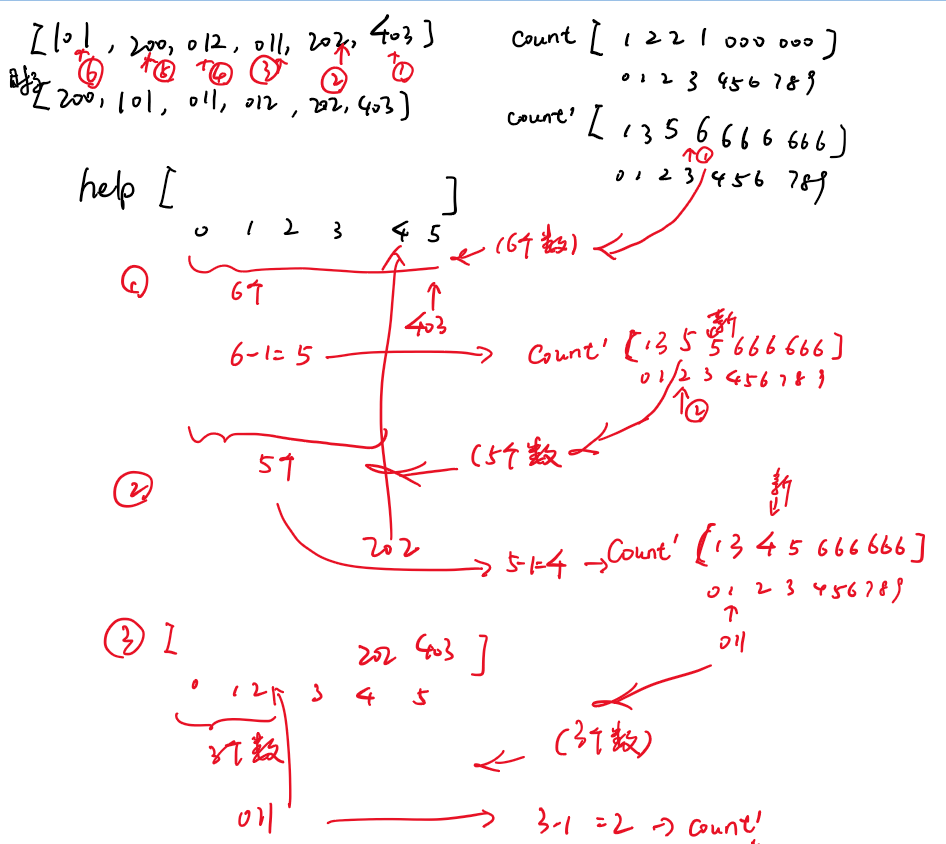 [101, 200, 012, 011, 202, 403]
⑥ ⑤ ④ ③ ② ①
[200, 101, 011, 012, 202, 403]
count [ 1 2 2 1 000 000 ]
0 1 2 3 456 789
count' [ 1 3 5 6 6 6 6 666 ]
①
0 1 2 3 456 789
help [ ]
0 1 2 3 4 5
(6个数)
①
6个
403
6-1=5
新
count' [13 5 5 666 666]
01 2 3 456 789
②
(5个数
5个
②
202
5-1=4
新
Count' [13 4 5 666 666]
01 2 3 456789
011
③ [ 202 403 ]
0 1 2 3 4 5
3个数
(3个数)
011
3-1=2 → count'